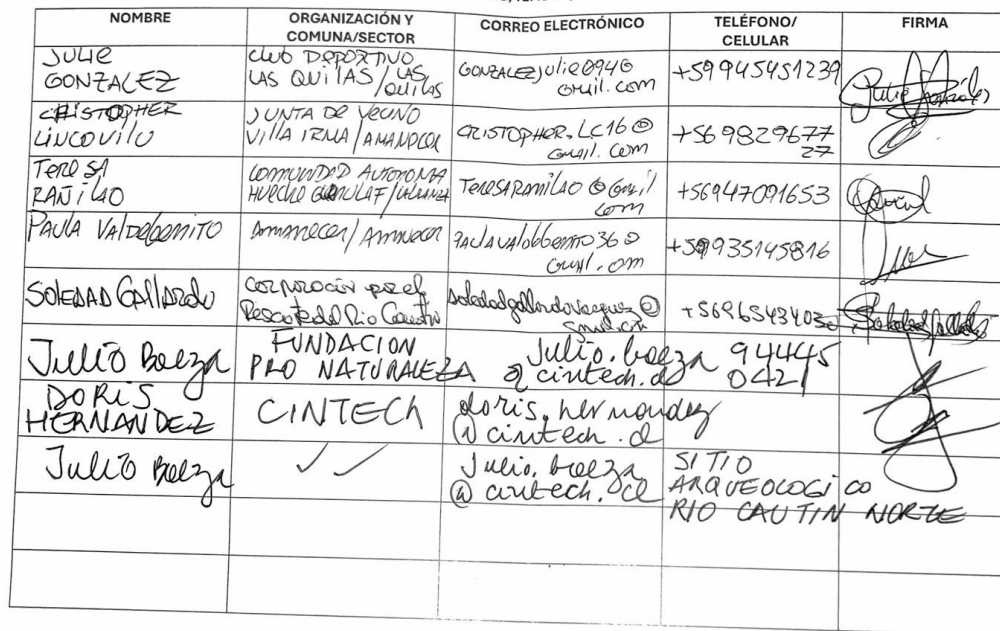 NOMBRE
ORGANIZACIÓN Y
COMUNA/SECTOR
CORREO ELECTRÓNICO
TELÉFONO/
CELULAR
FIRMA
JULIE
GONZALEZ
CLUB DEPORTIVO
LAS QUILAS/LAS
QUILAS
GONZALEZJULIE094@
GMIL.COM
+59945451239
CRISTOPHER
LINCOVILU
JUNTA DE VECINO
VILLA IRMA/AMANECER
CRISTOPHER.LC16@
GMAIL.COM
+569829677
27
TERESA
RAÑILAO
COMUNIDAD AUTONOMA
TERESARANILAO@GMIL
COM
+56947091653
PAULA VALDEBENITO
AMANECER/AMANECER
+59935145816
SOLEDAD GALLARDO
Corporación por el
Rescate del Rio Cautin
Soledadgallardovasquez@
gmail.com
Julio Baeza
FUNDACION
PRO NATURALEZA
Julio.baeza
@cintech.cl
94445
0421
DORIS
HERNANDEZ
CINTECH
doris.hernandez
@cintech.cl
Julio Baeza
✓✓
Julio.baeza
@cintech.cl
SITIO
ARQUEOLOGICO
RIO CAUTIN NORTE